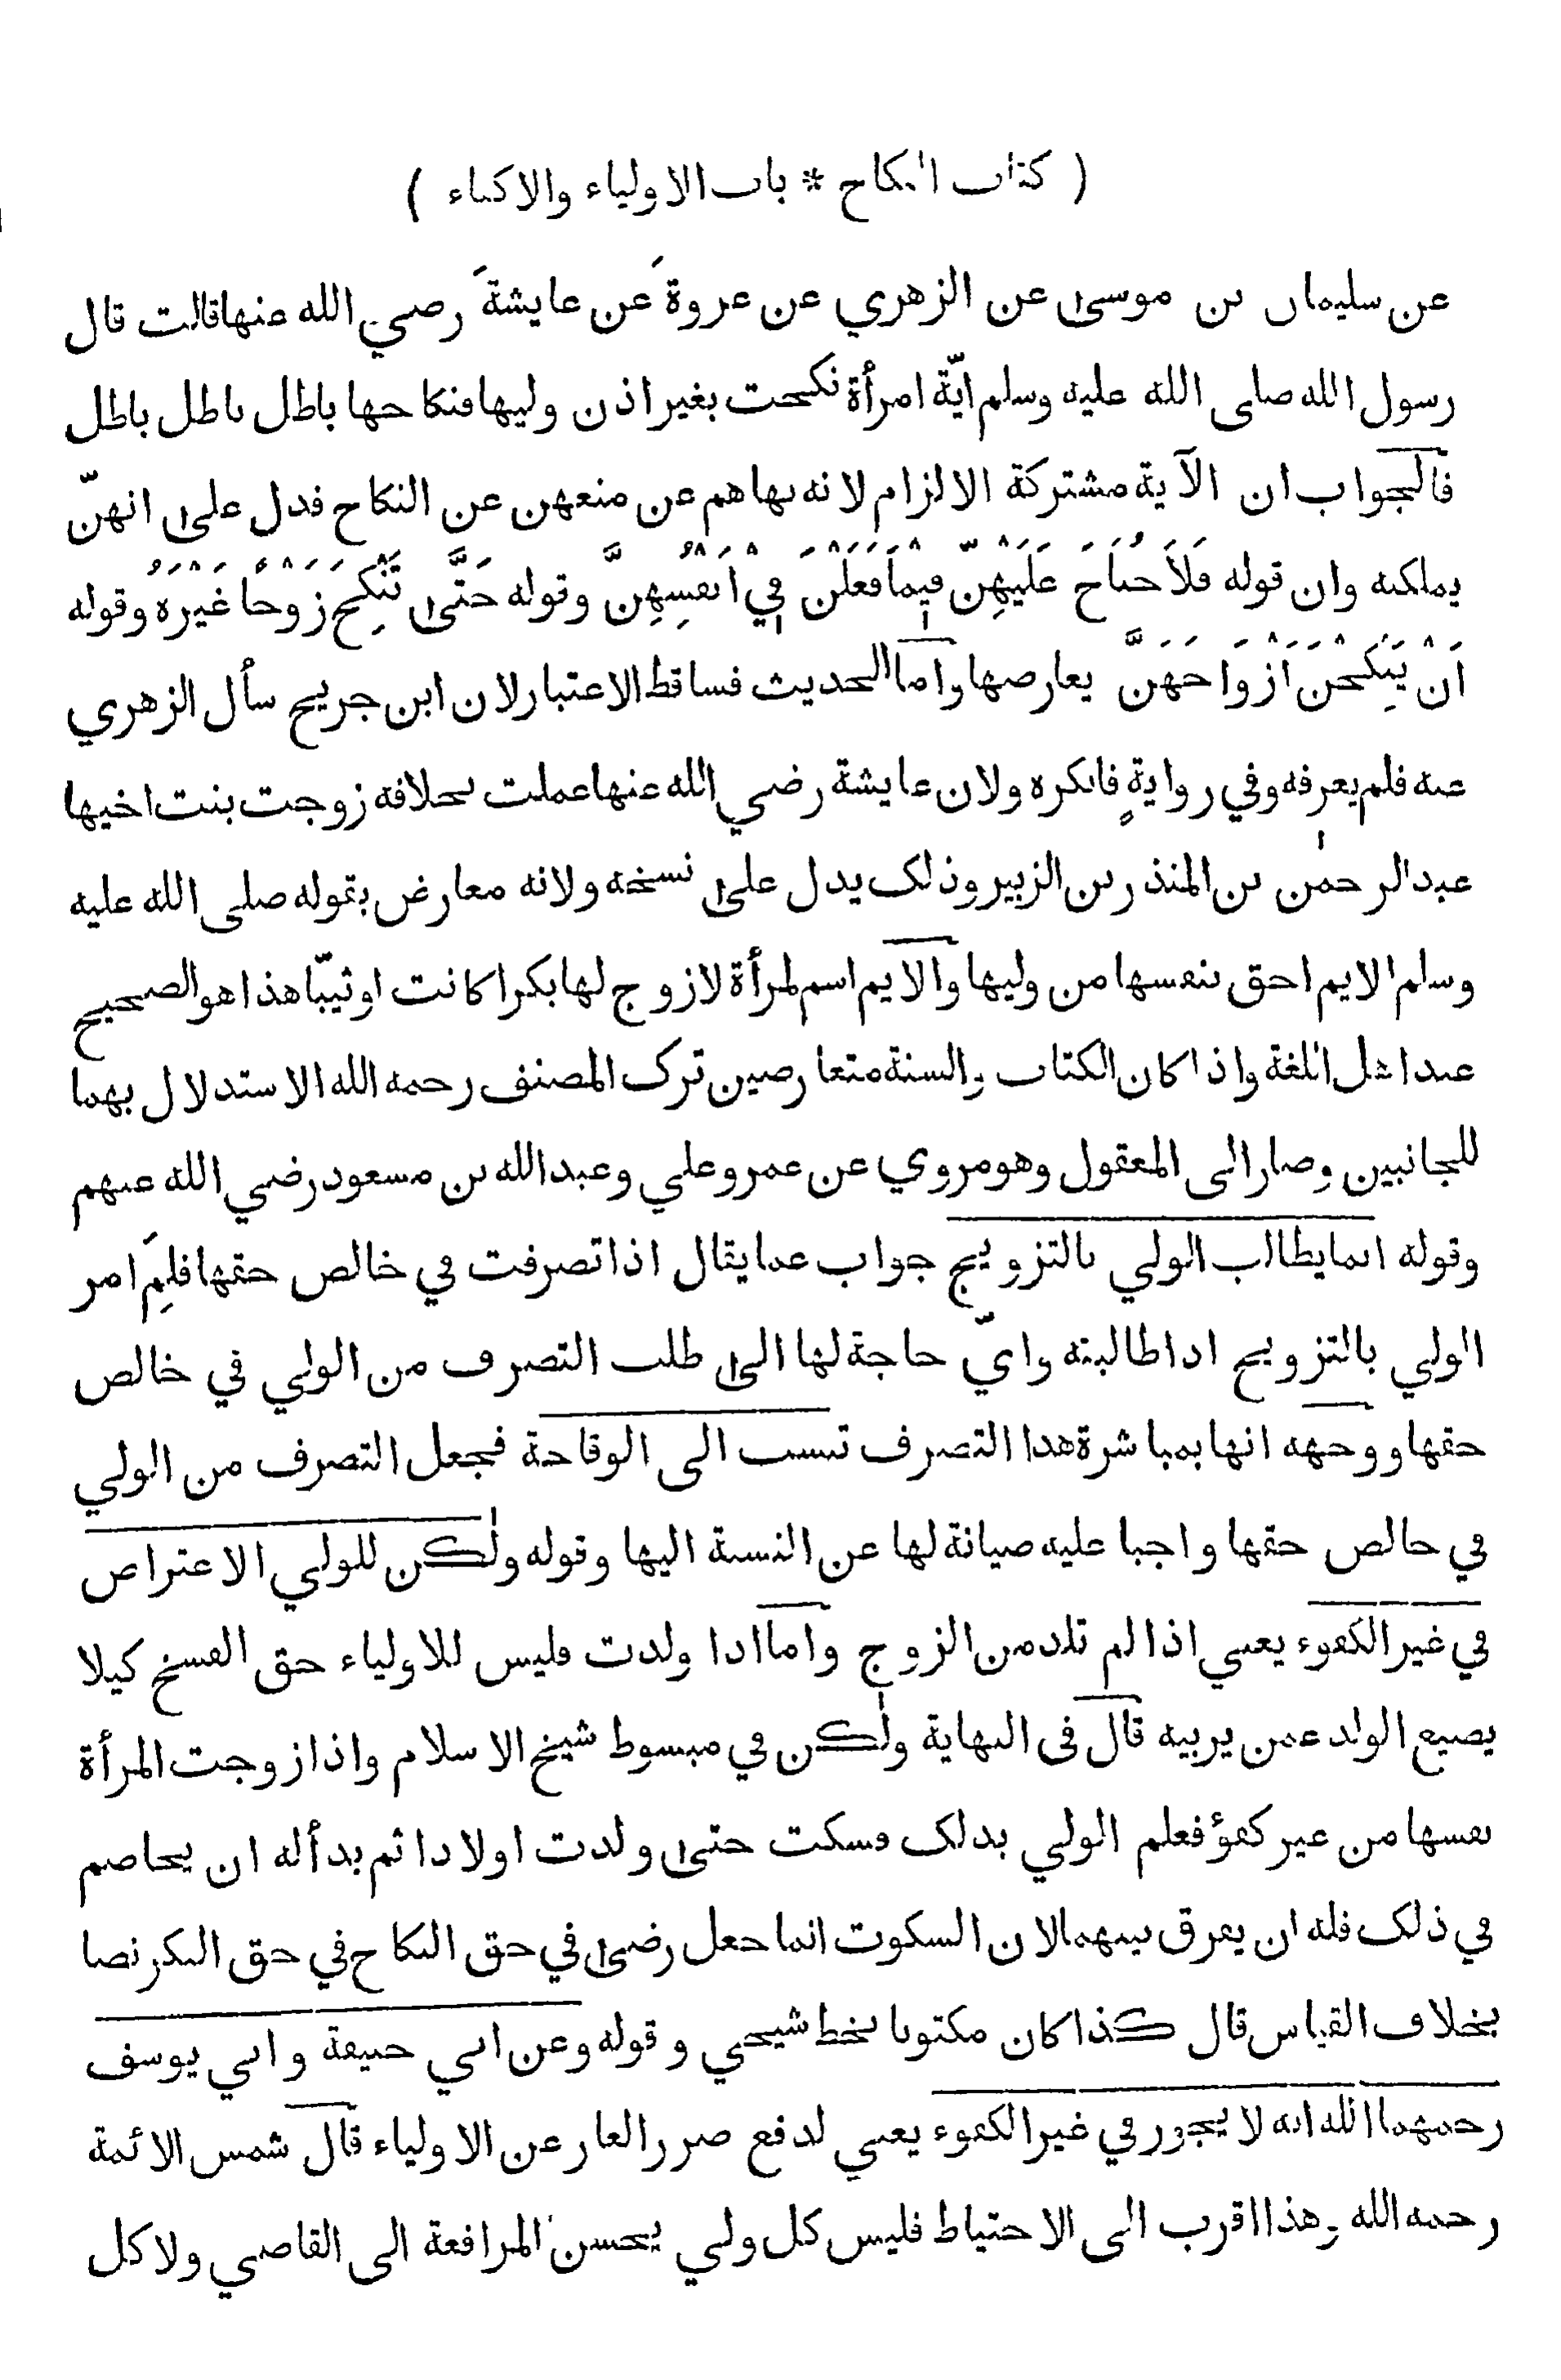 ( كتاب النكاح * باب الاولياء والاكفاء )
عن سليمان بن موسىٰ عن الزهري عن عروةَ عن عايشةَ رضي الله عنها قالت قال
رسول الله صلى الله عليه وسلم ايّة امرأة نكحت بغير اذن وليها فنكاحها باطل باطل باطل
فالجواب ان الآية مشتركة الالزام لانه نهاهم عن منعهن عن النكاح فدل علىٰ انهنّ
يملكنه وان قوله فَلَاَ جُنَاَحَ عَلَيْهِنّ فِيْمَا فَعَلْنَ فِيْ اَنْفُسِهِنَّ وقوله حَتَّىٰ تَنْكِحَ زَوْجًا غَيْرَهُ وقوله
اَنْ يَنْكِحْنَ اَزْوَاجَهَنَّ يعارضها واما الحديث فساقط الاعتبار لان ابن جريج سأل الزهري
عنه فلم يعرفه وفي روايةٍ فانكره ولان عايشة رضي الله عنها عملت بخلافه زوجت بنت اخيها
عبد الرحمٰن بن المنذر بن الزبير وذلك يدل علىٰ نسخه ولانه معارض بقوله صلى الله عليه
وسلم الايم احق بنفسها من وليها والايم اسم لمرأة لا زوج لها بكرا كانت او ثيّبا هذا هو الصحيح
عند اهل اللغة واذا كان الكتاب والسنة متعارضين ترك المصنف رحمه الله الاستدلال بهما
للجانبين وصار الى المعقول وهو مروي عن عمر وعلي وعبد الله بن مسعود رضي الله عنهم
وقوله انما يطالب الولي بالتزويج جواب عما يقال اذا تصرفت في خالص حقها فلِمَ امر
الولي بالتزويج اذا طالبته وايّ حاجة لها الىٰ طلب التصرف من الولي في خالص
حقها ووجهه انها بمباشرة هذا التصرف تنسب الى الوقاحة فجعل التصرف من الولي
في خالص حقها واجبا عليه صيانة لها عن النسبة اليها وقوله ولٰكن للولي الاعتراض
في غير الكفوء يعني اذا لم تلد من الزوج واما اذا ولدت فليس للاولياء حق الفسخ كيلا
يضيع الولد عمن يربيه قال فى النهاية ولٰكن في مبسوط شيخ الاسلام واذا زوجت المرأة
نفسها من غير كفؤ فعلم الولي بذلك فسكت حتىٰ ولدت اولادا ثم بدأ له ان يخاصم
في ذلك فله ان يفرق بينهما لان السكوت انما جعل رضىٰ في حق النكاح في حق البكر نصا
بخلاف القياس قال كذا كان مكتوبا بخط شيخي وقوله وعن ابي حنيفة وابي يوسف
رحمهما الله انه لا يجوز في غير الكفوء يعني لدفع ضرر العار عن الاولياء قال شمس الائمة
رحمه الله وهذا اقرب الى الاحتياط فليس كل ولي يحسن المرافعة الى القاضي ولا كل